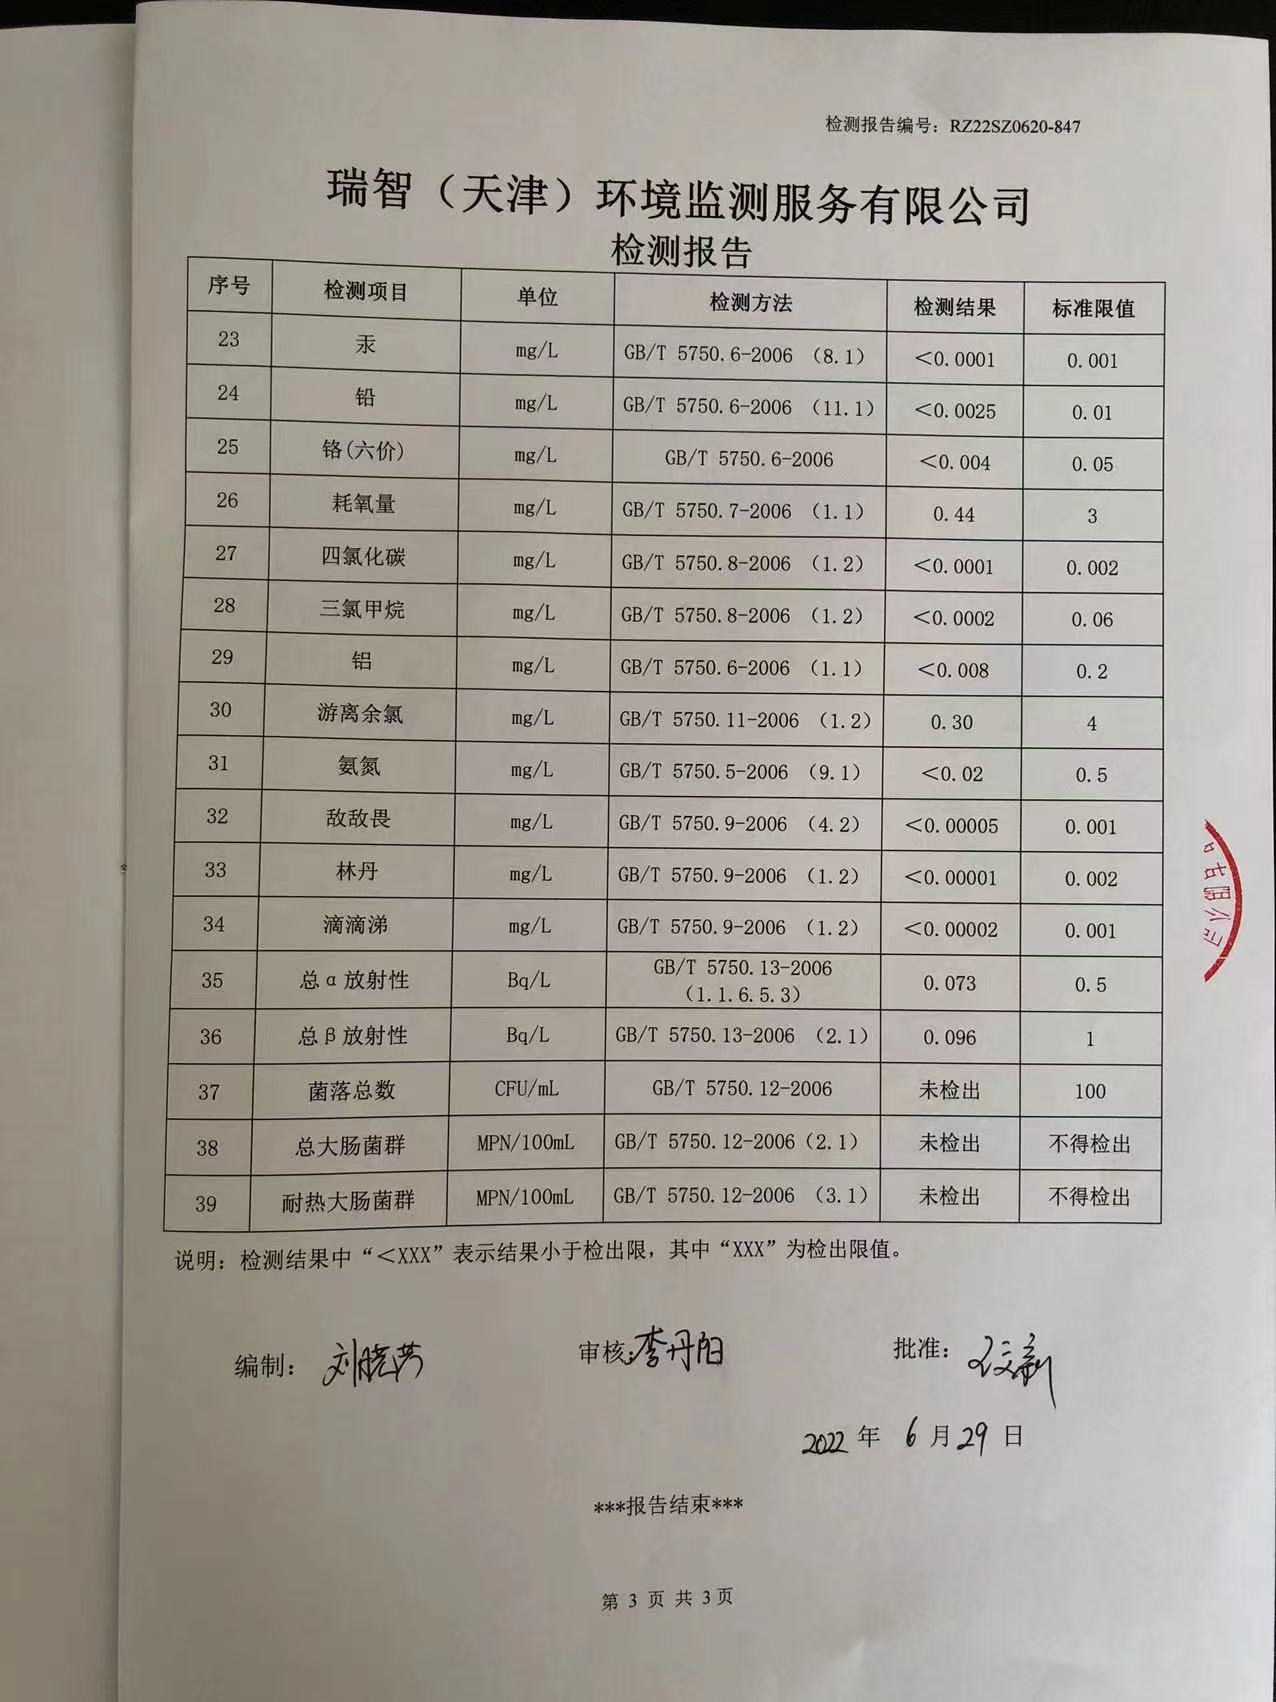 检测报告编号：RZ22SZ0620-847
瑞智（天津）环境监测服务有限公司
检测报告
序号 检测项目 单位 检测方法 检测结果 标准限值
23 汞 mg/L GB/T 5750.6-2006 （8.1） ＜0.0001 0.001
24 铅 mg/L GB/T 5750.6-2006 （11.1） ＜0.0025 0.01
25 铬(六价) mg/L GB/T 5750.6-2006 ＜0.004 0.05
26 耗氧量 mg/L GB/T 5750.7-2006 （1.1） 0.44 3
27 四氯化碳 mg/L GB/T 5750.8-2006 （1.2） ＜0.0001 0.002
28 三氯甲烷 mg/L GB/T 5750.8-2006 （1.2） ＜0.0002 0.06
29 铝 mg/L GB/T 5750.6-2006 （1.1） ＜0.008 0.2
30 游离余氯 mg/L GB/T 5750.11-2006 （1.2） 0.30 4
31 氨氮 mg/L GB/T 5750.5-2006 （9.1） ＜0.02 0.5
32 敌敌畏 mg/L GB/T 5750.9-2006 （4.2） ＜0.00005 0.001
33 林丹 mg/L GB/T 5750.9-2006 （1.2） ＜0.00001 0.002
34 滴滴涕 mg/L GB/T 5750.9-2006 （1.2） ＜0.00002 0.001
35 总α放射性 Bq/L GB/T 5750.13-2006 （1.1.6.5.3） 0.073 0.5
36 总β放射性 Bq/L GB/T 5750.13-2006 （2.1） 0.096 1
37 菌落总数 CFU/mL GB/T 5750.12-2006 未检出 100
38 总大肠菌群 MPN/100mL GB/T 5750.12-2006（2.1） 未检出 不得检出
39 耐热大肠菌群 MPN/100mL GB/T 5750.12-2006 （3.1） 未检出 不得检出
说明：检测结果中“＜XXX”表示结果小于检出限，其中“XXX”为检出限值。
编制： 审核：李丹阳 批准：
2022 年 6 月 29 日
***报告结束***
第 3 页 共 3 页